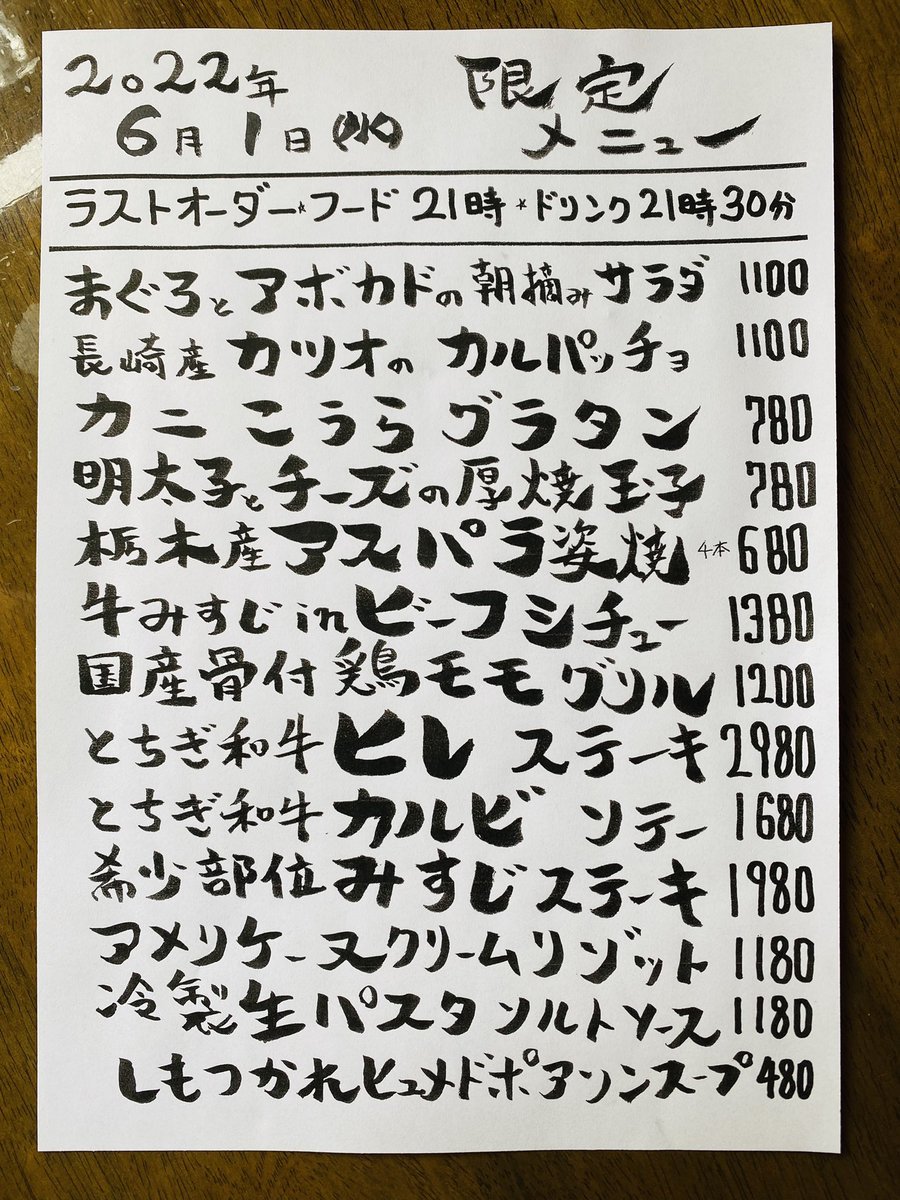 2022年 限定
6月1日(水) メニュー
ラストオーダー★フード 21時★ドリンク21時30分
まぐろとアボカドの朝摘みサラダ 1100
長崎産カツオのカルパッチョ 1100
カニこうらグラタン 780
明太子とチーズの厚焼玉子 780
栃木産アスパラ姿焼 4本 680
牛みすじinビーフシチュー 1380
国産骨付鶏モモグリル 1200
とちぎ和牛ヒレステーキ 2980
とちぎ和牛カルビソテー 1680
希少部位みすじステーキ 1980
アメリケーヌクリームリゾット 1180
冷製生パスタソルトソース 1180
しもつかれヒュメドポアソンスープ 480